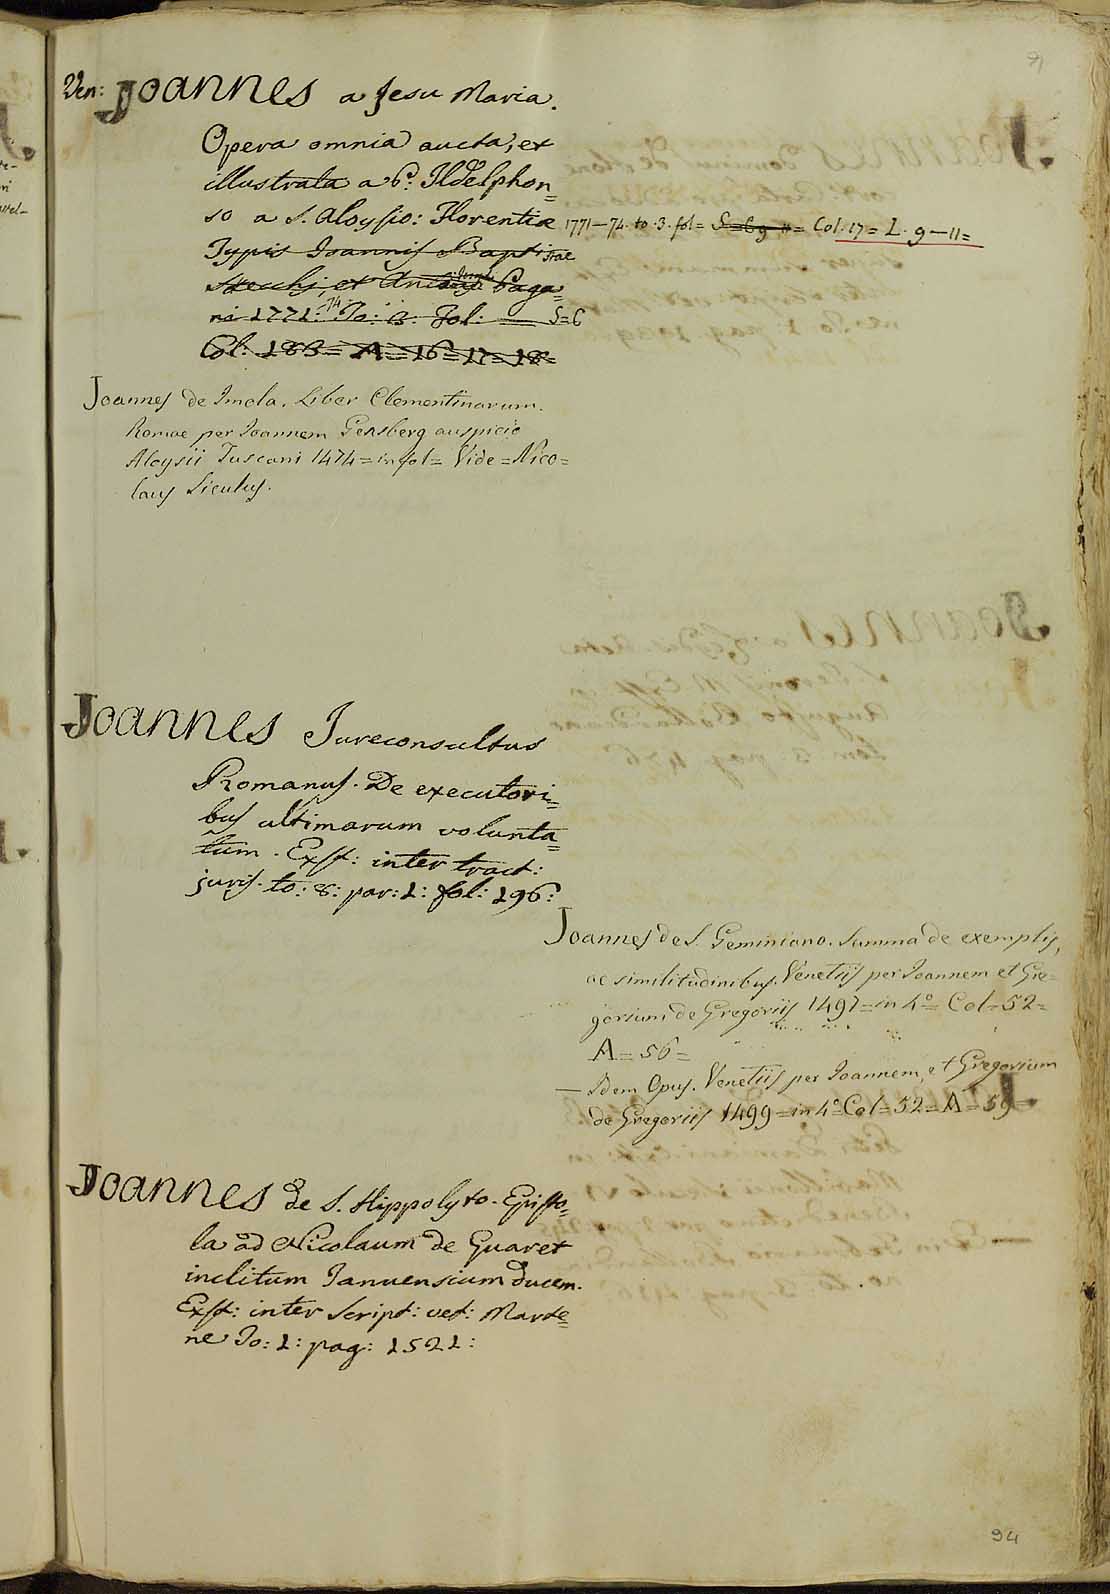 Ven: Joannes a Jesu Maria.
Opera omnia aucta, et
illustrata a P. Ildelphon=
so a S. Aloysio: Florentiæ 1771-74. to. 3. fol= S=C 9 = Col. 17= L. 9-11=
Typis Joannis Baptistae
Stecchi, et Paga=
ni 1771:-74 To: 3. Fol: — S=C
Col: 183= A=16=17=18=
Joannes de Imola. Liber Clementinarum.
Romae per Joannem Gensberg auspicio
Aloysii Tuscani 1474= in fol= Vide=Nico=
laus Siculus.
Joannes Jureconsultus
Romanus. De executori=
bus ultimarum volunta=
tum. Exst: inter tract:
juris. to: 8: par: 1: fol: 196:
Joannes de S. Geminiano. Summa de exemplis,
ac similitudinibus. Venetiis per Joannem et Gre=
gorium de Gregoriis 1497= in 4º= Col=52=
A=56=
— Idem Opus. Venetiis per Joannem, et Gregorium
de Gregoriis 1499= in 4º= Col=52=A=59
Joannes de S. Hippolyto. Episto=
la ad Nicolaum de Guaret
inclitum Januensium ducem.
Exst: inter Script: vet: Marte=
ne To: 1: pag: 1521:
94